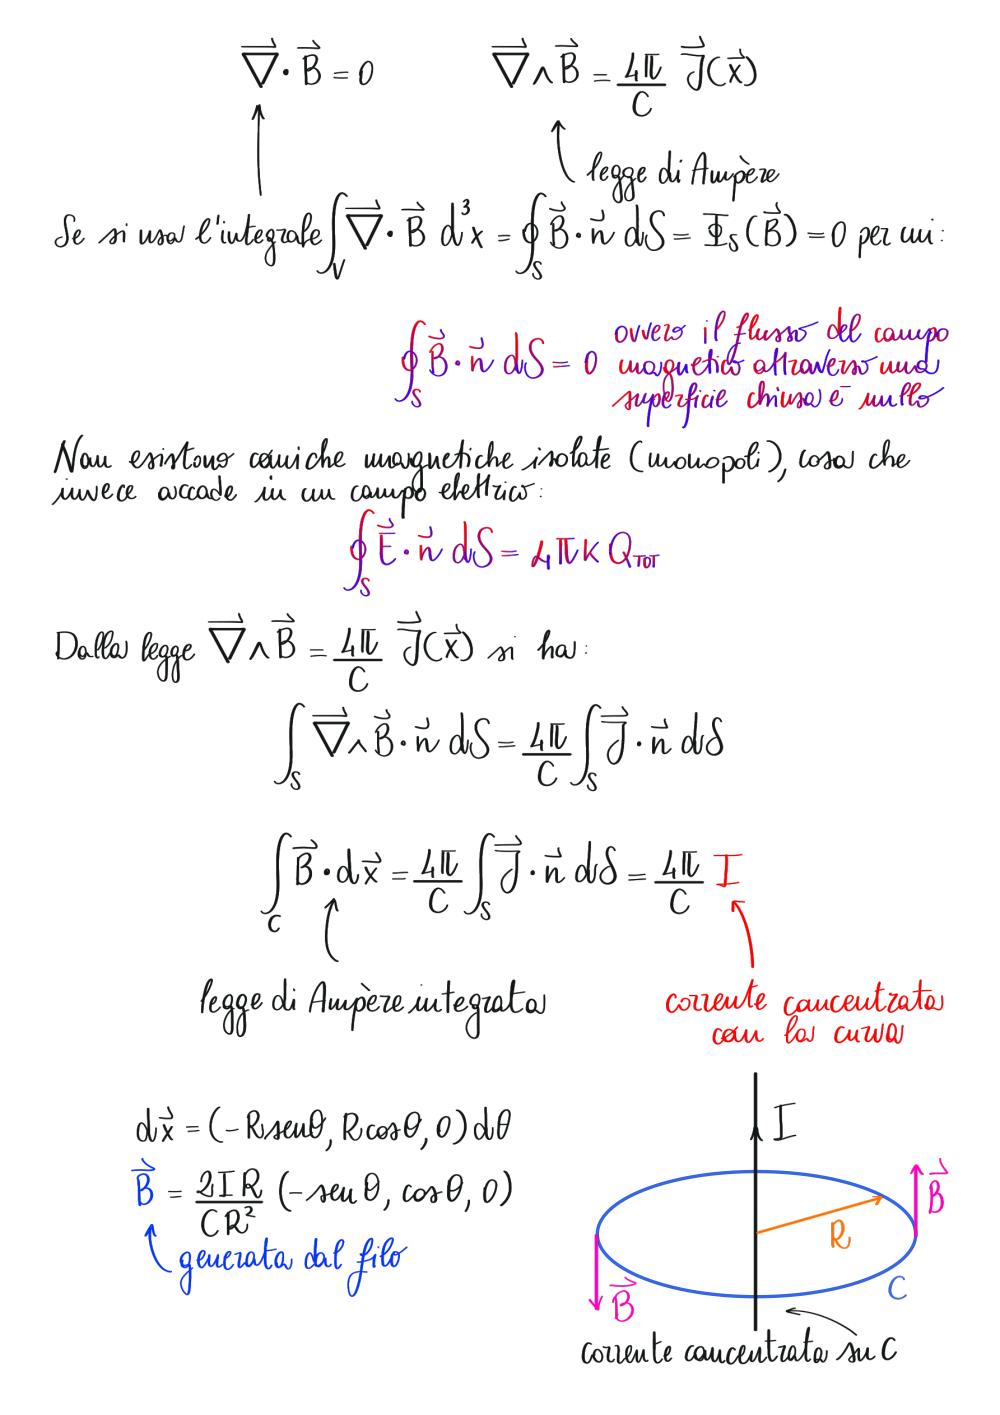 ∇⃗ · B⃗ = 0    ∇⃗ ∧ B⃗ = 4π/C J⃗(x⃗)
legge di Ampère
Se si usa l'integrale ∫_V ∇⃗ · B⃗ d³x = ∮_S B⃗ · n⃗ dS = Φ_S(B⃗) = 0 per cui:
∮_S B⃗ · n⃗ dS = 0
ovvero il flusso del campo
magnetico attraverso una
superficie chiusa è nullo
Non esistono cariche magnetiche isolate (monopoli), cosa che
invece accade in un campo elettrico:
∮_S E⃗ · n⃗ dS = 4πK Q_TOT
Dalla legge ∇⃗ ∧ B⃗ = 4π/C J⃗(x⃗) si ha:
∫_S ∇⃗ ∧ B⃗ · n⃗ dS = 4π/C ∫_S J⃗ · n⃗ dS
∫_C B⃗ · dx⃗ = 4π/C ∫_S J⃗ · n⃗ dS = 4π/C I
legge di Ampère integrata
corrente concentrata
con la curva
dx⃗ = (-R senθ, R cosθ, 0) dθ
B⃗ = 2IR/CR² (-senθ, cosθ, 0)
generata dal filo
I
B⃗
R
C
B⃗
corrente concentrata su C